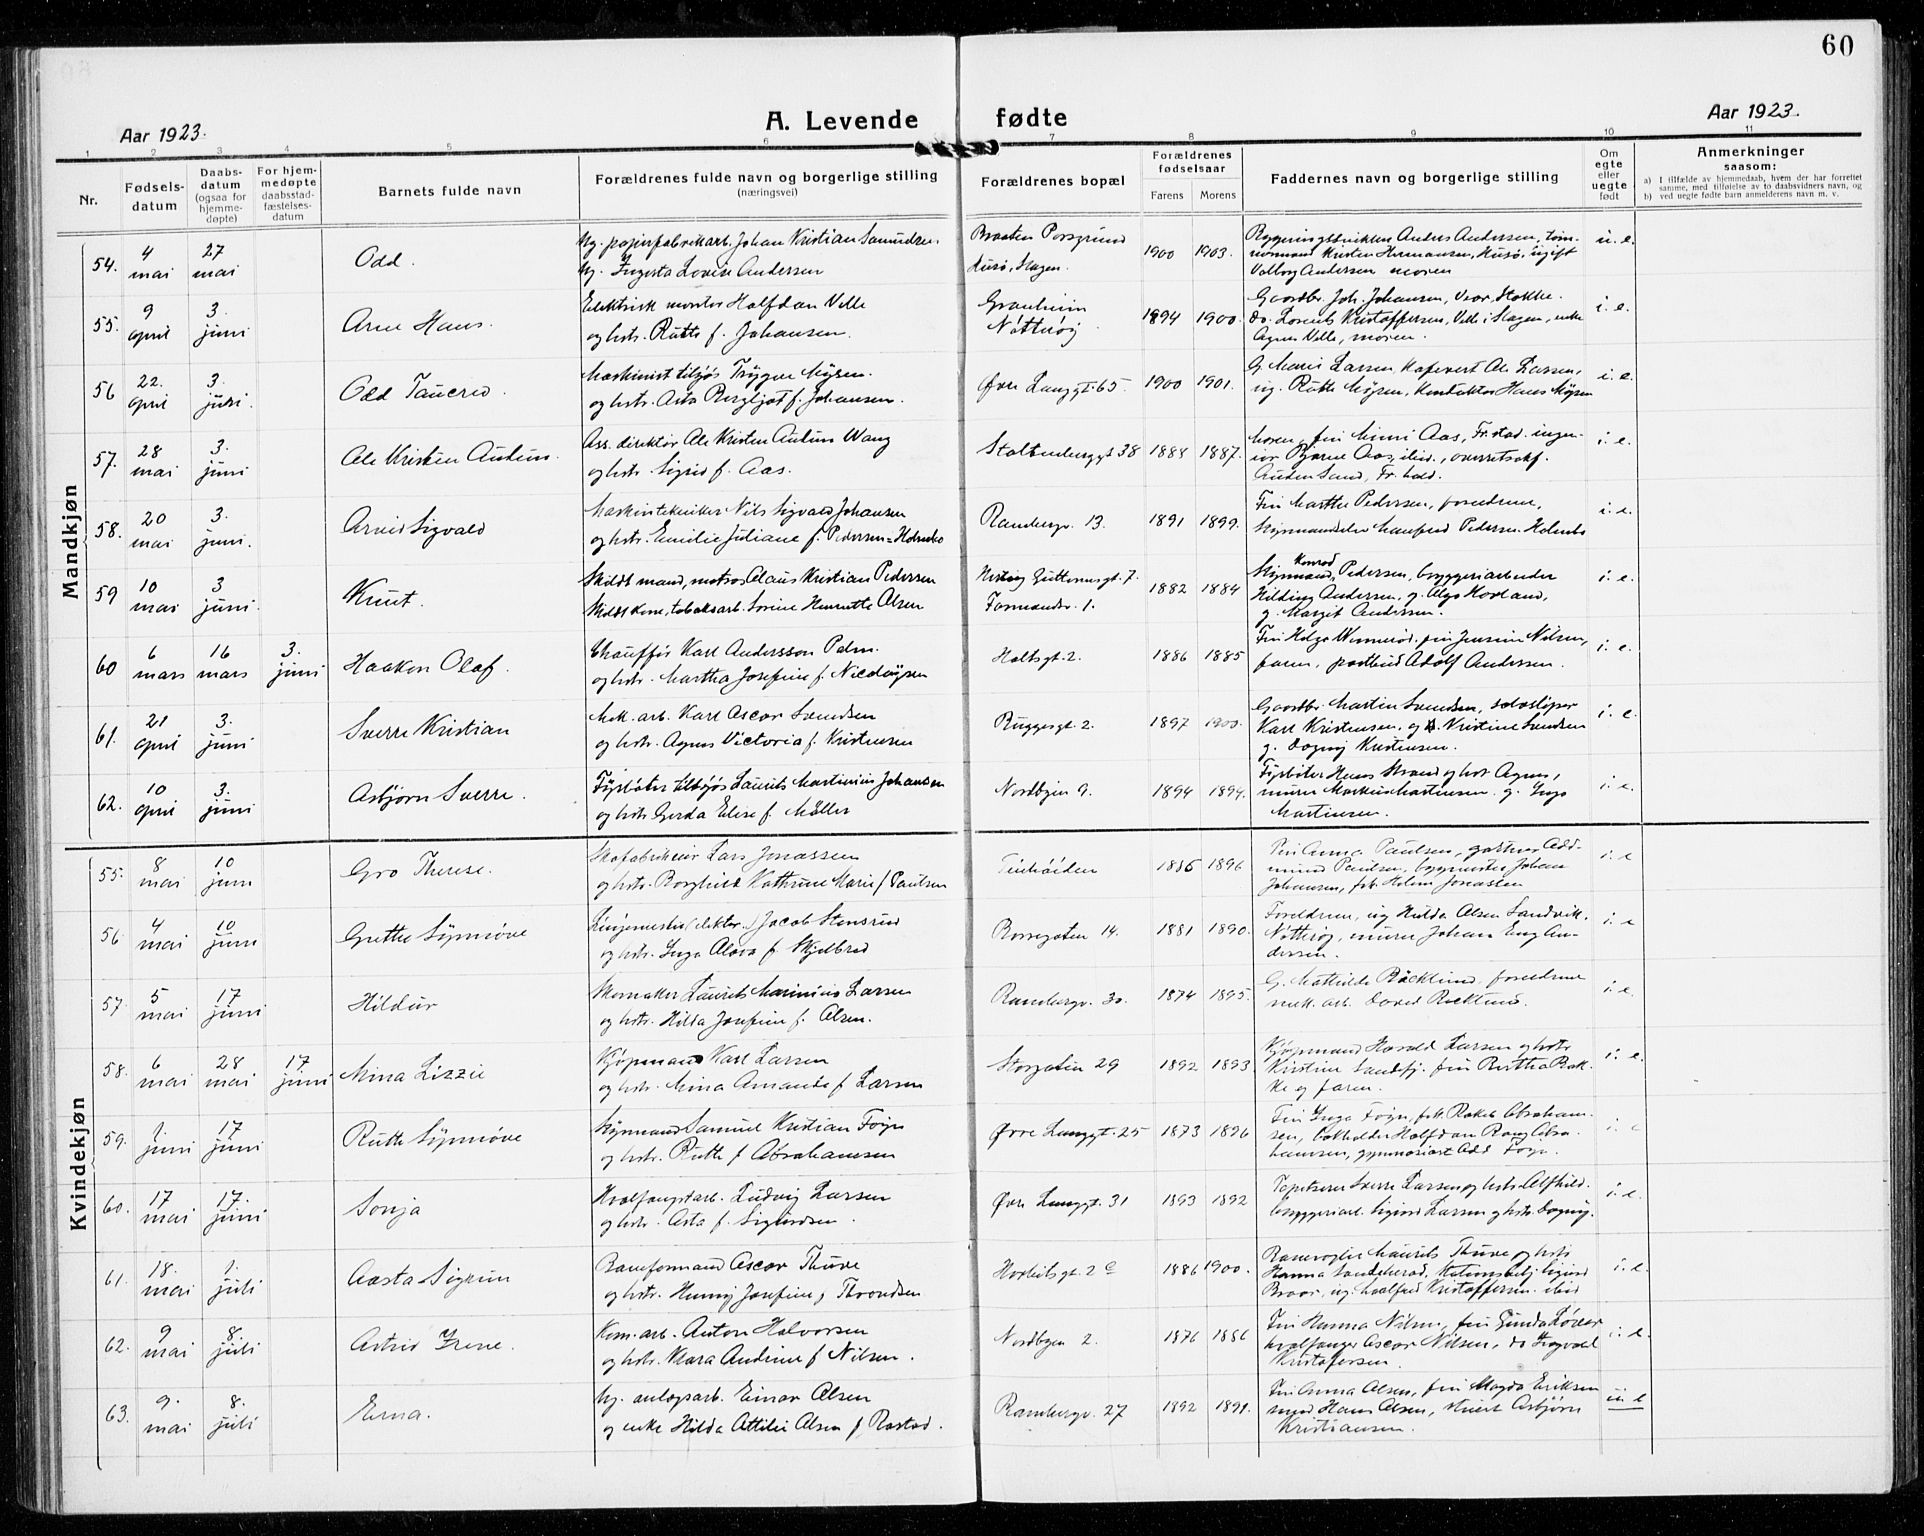 60
Aar 1923.
A. Levende fødte
Aar 1923.
1 2 3 4 5 6 7 8 9 10 11
Nr.
Fødsels-
datum
Daabs-
datum
(ogsaa for
hjemme-
døpte)
For hjem-
medøpte
daabsstad-
fæstelses-
datum
Barnets fulde navn
Forældrenes fulde navn og borgerlige stilling
(næringsvei)
Forældrenes bopæl
Forældrenes
fødselsaar
Farens Morens
Faddernes navn og borgerlige stilling
Om
egte
eller
uegte
født
Anmerkninger
saasom:
a) I tilfælde av hjemmedaab, hvem der har forrettet
samme, med tilføielse av to daabsvidners navn, og
b) ved uegte fødte barn anmelderens navn m. v.
Mandkjøn
54. 4 mai 27 mai Odd.
Ug. papirfabrikarb. Johan Kristian
Ug. Lovise Andersen
Porsgrund
Husø, Slagen.
1900 1903.
Anders Andersen,
Kristen Hermansen, Husø, ugift
Valborg Andersen moren
u. e.
55. 9 april 3. juni Arne Hans.
Elektrisk montør Halfdan Velle
og hstr. Ruth f. Johansen.
Granheim
Nøtterøy
1894 1900.
Gaardbr. Joh. Johansen, Vear, Stokke.
do. Lorents Kristoffersen, Velle i Slagen, enke
Agnes Velle, moren.
i. e.
56 22. april 3. juni. Odd Tancred.
Maskinist tilsjøs Trygve Myhren.
og hstr. Asta Bergljot f. Johansen.
Øvre Langgt. 65
1900 1901.
G. Marie Larsen, Ole Larsen,
ug. Ruth konduktør Hans
i. e.
57. 28 mai 3. juni Ole Kristen Anton.
Ass. direktør Ole Kristen Wang
og hstr. Sigrid f. Aas.
Stoltenberggt 38
1884 1887.
Moren, frk. Aas, Fr.stad. ingen-
iør Bjarne Aas, ibid., overretssakf.
Sand, Fr.hald.
i. e.
58. 20 mai 3. juni. Arvid Sigvald
Maskintekniker Nils Sigvald Johansen
og hstr. Emilie Juliane f. Pedersen=Holmbo
Rambergv. 13.
1891 1899.
Fru Marthe Pedersen, foreldrene,
Manfred Pedersen Holmbo
i. e.
59 10 mai 3 juni. Knut.
Skildt mand, matros Claus Kristian Pedersen
Skildt kone, tobaksarb. Sorine Henriette Olsen
Hertug Guttormsgt. 7.
Formandsv. 1.
1882 1884
Konrad
Pedersen, bryggeriarbeider
Hilding Andersen, g. Hovland,
g. Margit Andersen.
i. e.
60 6 mars 16 mars 3. juni Haakon Olaf.
Chauffør Karl Andersson Palm.
og hstr. Martha Josefine f. Nicolaysen
Holtsgt. 2.
1886 1885
Fru Helga frk. Jensine Nilsen,
faren, postbud Adolf Andersen.
i. e.
61. 21 april 3. juni Sverre Kristian
Mek. arb. Karl Oscar Svendsen
og hstr. Agnes Victoria f. Kristensen
Ruggesgt. 2.
1897 1900.
Gaardbr. Martin Svendsen,
Karl Kristensen, Kristine Svendsen
g. Dagny Kristensen.
i. e.
62. 10 april 3. juni Asbjørn Sverre.
Fyrbøter tilsjøs Laurits Martinius Johansen
og hstr. Gerda Elise f. Møller
Nordbyen 9.
1894 1894.
Fyrbøter Hans Strand og hst. Agnes,
murer Markus Martinsen. g. Inga
Martinsen.
i. e.
Kvindekjøn
55. 8 mai 10 juni Gro Therese.
Lars Jonassen
og hstr. Borghild Kathrine Marie f. Paulsen
1886 1896
Fru Anna Paulsen, gartner
Paulsen, bygmester Johan
Johansen, frk. Jonassen
i. e
56. 4 mai 10 juni Grethe Synnøve
Linjemester (elektr.) Jacob Stensrud
og hstr. Inga Olava f. Skjelbred
14.
1881 1890.
Foreldrene, ug Hilda Olsen Sandvik.
Nøtterøy, murer Johan Eng An-
dersen.
i. e
57 5 mai 17 juni Hildur
Skomaker Laurits Marinius Larsen
og hstr. Hilda Josefine f. Olsen.
Rambergv. 30.
1874 1895.
G. Mathilde Bäcklund, foreldrene
mek. arb. David Bäcklund.
i. e.
58. 6 mai 28 mai 17 juni Mina Lizzie
Kjøpmand Karl Larsen
og hstr. Mina Amanda f Larsen
Storgaten 29
1892 1893
Kjøpmand Harald Larsen og hstr
Kristine Sandefj. frk Bertha Bak-
ke og faren.
i. e.
59. 1. juni 17 juni Ruth Synnøve
Samuel Kristian Foyn
og hstr. Ruth f Abrahamsen
Øvre Langgt. 25
1873 1896
Fru Inga Foyn, frk. Rakel Abraham-
sen, bokholder Halfdan Abra-
hamsen, gymnasiast Odd Foyn.
i. e
60. 17 mai 17. juni Sonja
Hvalfangstarb. Ludvig Larsen
og hstr. Asta f. Sigurdsen.
Øvre Langgt. 31
1893 1892
Tapetserer Sverre Larsen og hstr. Alfhild.
bryggeriarb. Sigurd Larsen og hstr. Dagny.
i. e.
61. 18. mai 1. juli Aasta Sigrun
Baneformand Oscar Thuve
og hstr. Henny Josefine f Trondsen
Horbitsgt. 2 c
1886 1900.
Banevogter Maurits Thuve og hstr
Hanna
Kristoffersen ibid
i. e.
62. 9 mai 8. juli Astrid Irene.
Kom. arb. Anton Halvorsen
og hstr. Klara Andrine f Nilsen.
Nordbyen 2.
1876 1886
Fru Hanna Nilsen, fru Gunda
hvalfanger Oscar Nilsen, do
Kristoffersen.
i. e.
63. 9. mai 8. juli Erna.
Ug. anlægsarb. Einar Olsen
og enke Hilda Attilie Olsen f. Rastad.
Rambergv. 27
1892 1891.
Fru Anna Olsen, fru Magda Eriksen
Hans Olsen, Asbjørn
Kristiansen.
u. e